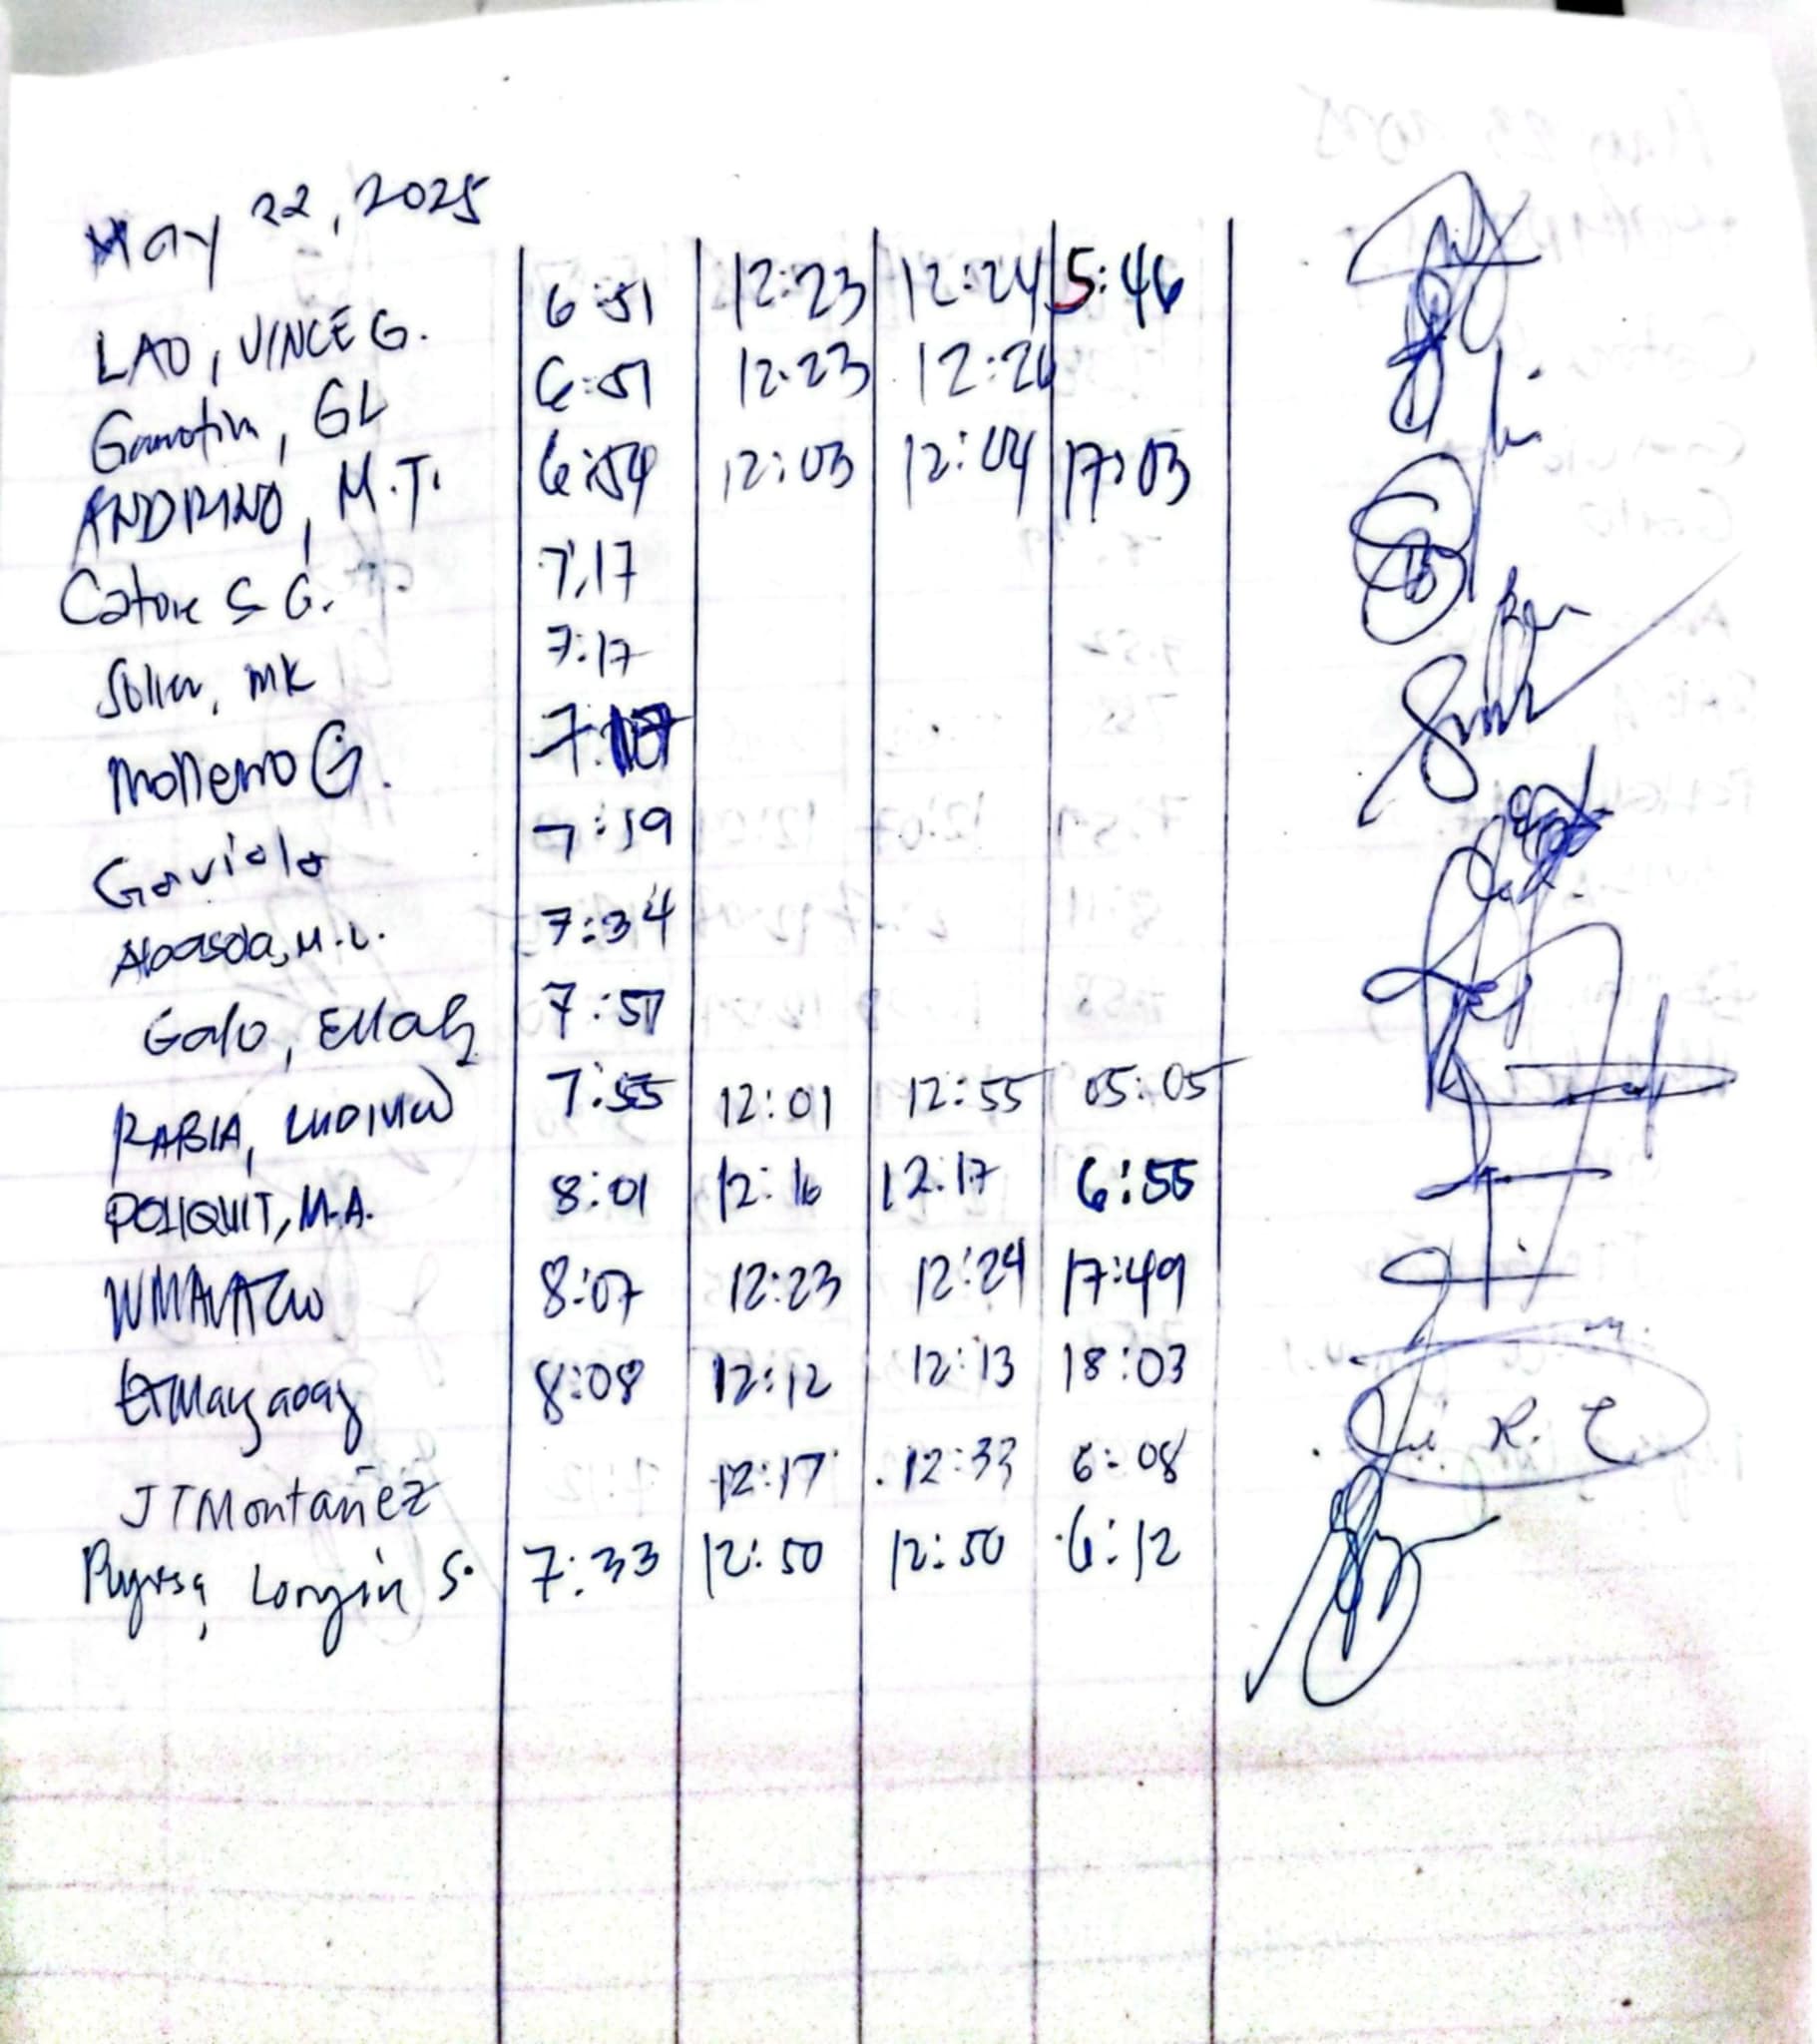 May 22, 2025
LAO, VINCE G. 6:51 12:23 12:24 5:46
Gamotin, GL 6:51 12:23 12:24
ANDRINO, M.T. 6:54 12:03 12:04 17:03
Catore S G. 7:17
Soller, MK 7:17
Mollemo G. 7:17
Gaviola 7:19
M.L. 7:34
Galo, Ellah 7:51
RABIA, 7:55 12:01 12:55 05:05
POLIQUIT, M.A. 8:01 12:16 12:17 6:55
8:07 12:23 12:24 17:49
8:08 12:12 12:13 18:03
JTMontañez 12:17 12:33 6:08
Longin S. 7:33 12:50 12:50 6:12